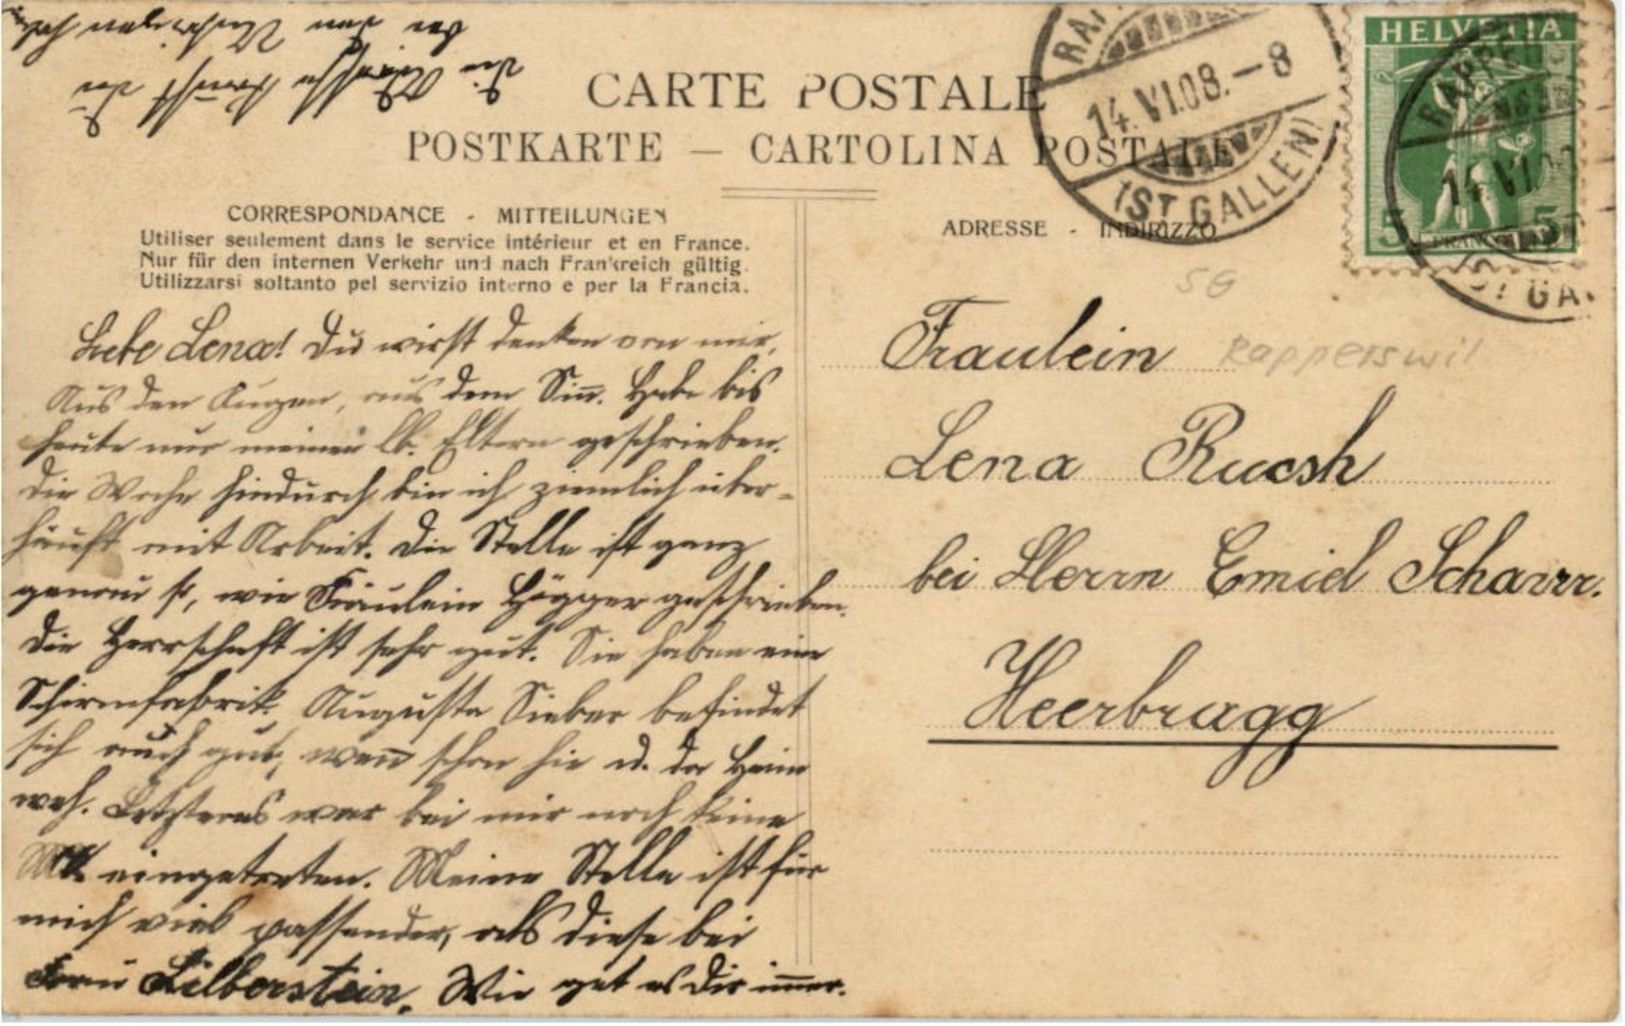 CARTE POSTALE
POSTKARTE — CARTOLINA POSTALE
CORRESPONDANCE - MITTEILUNGEN
Utiliser seulement dans le service intérieur et en France.
Nur für den internen Verkehr und nach Frankreich gültig.
Utilizzarsi soltanto pel servizio interno e per la Francia.
Liebe Lena! Du wirst denken von mir,
Aus den Augen, aus dem Sin̅. Habe bis
heute nur meinen lb. Eltern geschrieben.
Die Woche hindurch bin ich ziemlich über-
häuft mit Arbeit. Die Stelle ist ganz
genau so, wie Fräulein Högger geschrieben.
Die Herrschaft ist sehr gut. Sie haben eine
Schirmfabrik. Augusta Sieber befindet
sich auch gut, wen̅ schon hie u. da Heim
weh. Letzteres war bei mir noch keine
eingetreten. Meine Stelle ist für
mich viel passender, als diese bei
Frau Silberstein. Wie get es Dir im̅er.
Die Grüsst Dich
ADRESSE - INDIRIZZO
SG
Fraulein Rapperswil
Lena Ruesh
bei Herrn Emiel Scharrr.
Heerbrugg
14.VI.08.–8
(ST GALLEN)
HELVETIA
5 5
RAPPE
14 VI.08
ST GA